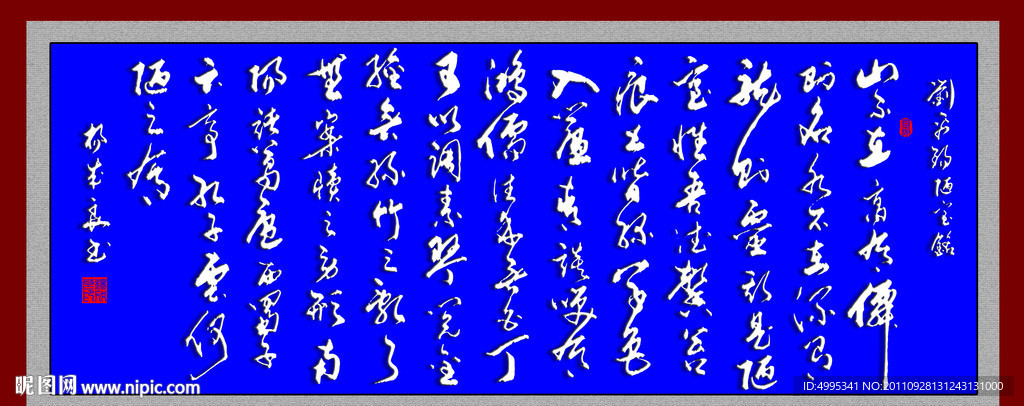 劉禹錫陋室銘
山不在高有僊
則名水不在深有
龍則靈斯是陋
室惟吾德馨苔
痕上階綠草色
入簾青談笑有
鴻儒往來無白丁
可以調素琴閱金
經無絲竹之亂耳
無案牘之勞形南
陽諸葛廬西蜀子
云亭孔子雲何
陋之有
書
昵图网 www.nipic.com
ID:4995341 NO:20110928131243131000